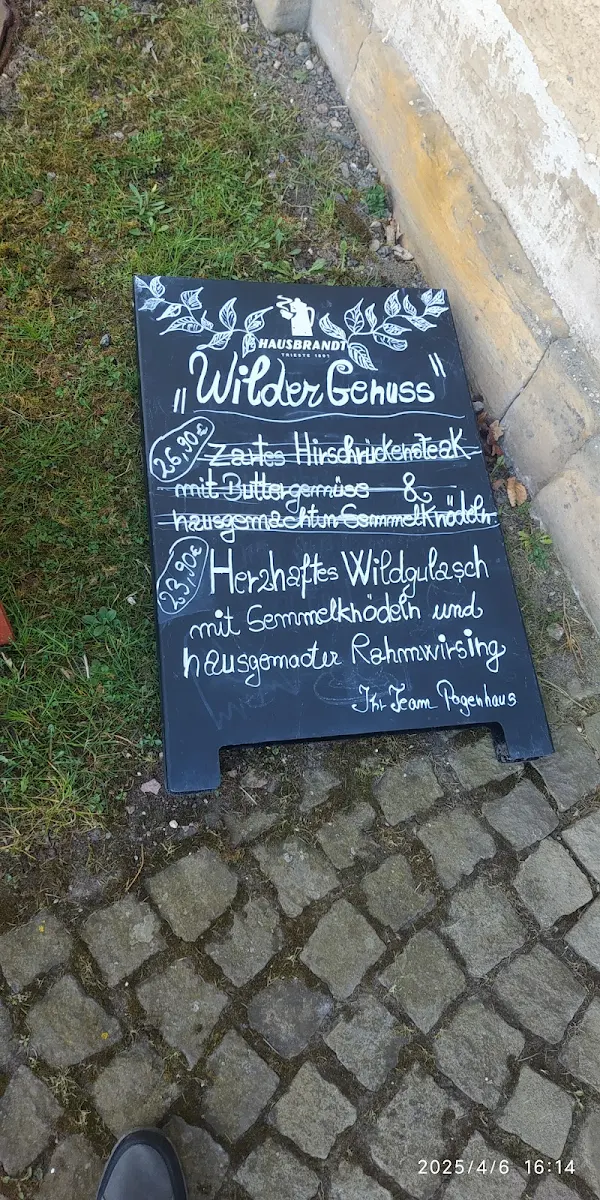 HAUSBRANDT
TRIESTE 1892
"Wilder Genuss"
26,90€ zartes Hirschrückensteak
mit Buttergemüse &
hausgemachten Semmelknödeln
23,90€ Herzhaftes Wildgulasch
mit Semmelknödeln und
hausgemachter Rahmwirsing
Ihr Team Pagenhaus
2025/4/6 16:14